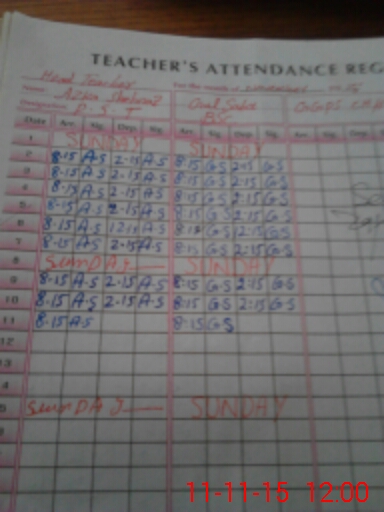 TEACHER'S ATTENDANCE REG
Head Teacher For the month of
Name
Designation P. S. T BSC
Date Arr. Sig. Dep. Sig. Arr. Sig. Dep. Sig. Arr. Sig. Dep. Sig.
1 SUNDAY SUNDAY
2 8.15 A.S 2.15 A.S 8:15 G.S 2:15 G.S
3 8.15 A.S 2.15 A.S 8:15 G.S 2:15 G.S
4 8.15 A.S 2.15 A.S 8:15 G.S 2:15 G.S
5 8.15 A.S 2.15 A.S 8:15 G.S 2:15 G.S
6 8.15 A.S 12.15 A.S 8:15 G.S 12:15 G.S
7 8.15 A.S 2.15 A.S 8:15 G.S 2:15 G.S
8 SunDAY SUNDAY
9 8.15 A.S 2.15 A.S 8:15 G.S 2:15 G.S
10 8.15 A.S 2.15 A.S 8:15 G.S 2:15 G.S
11 8.15 A.S 8:15 G.S
12
13
4
5 SunDAY SUNDAY
11-11-15 12.00